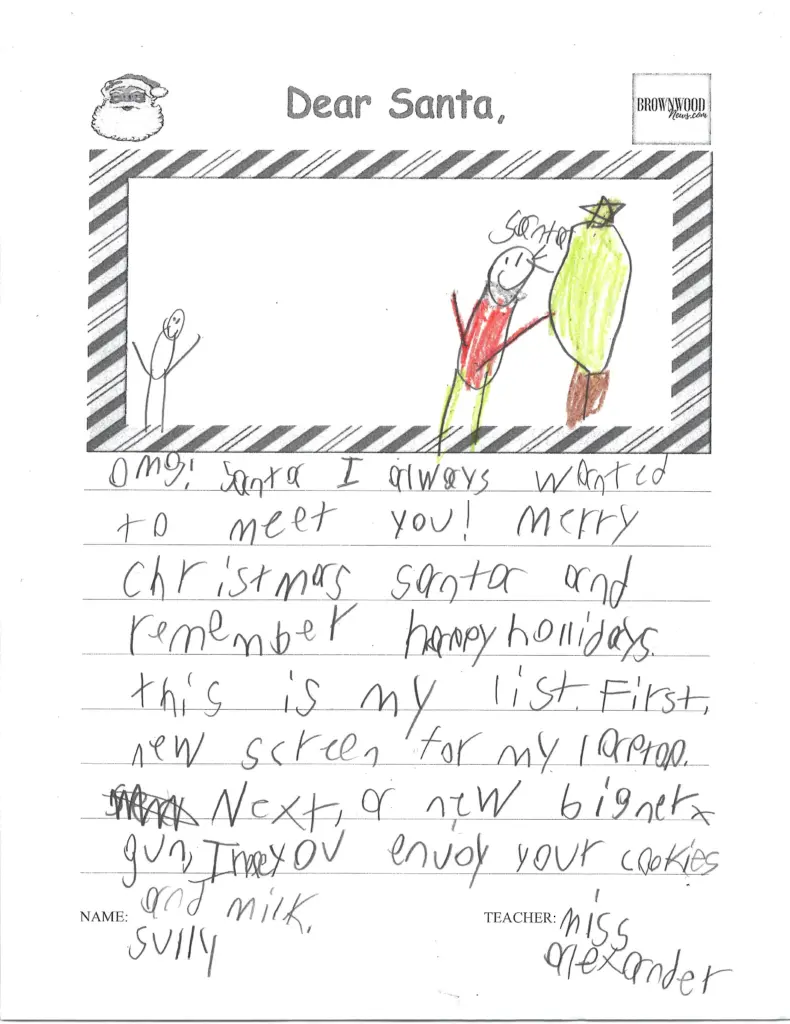 Dear Santa,
BROWNWOOD
News.com
santa
omg! Santa I always wanted
to meet you! Merry
christmas santa and
remember happy hollidays.
this is my list. First,
new screen for my laptop.
Next, a new big nerf
gun, I hope you enjoy your cookies
and milk.
NAME: sully
TEACHER: miss
alexander